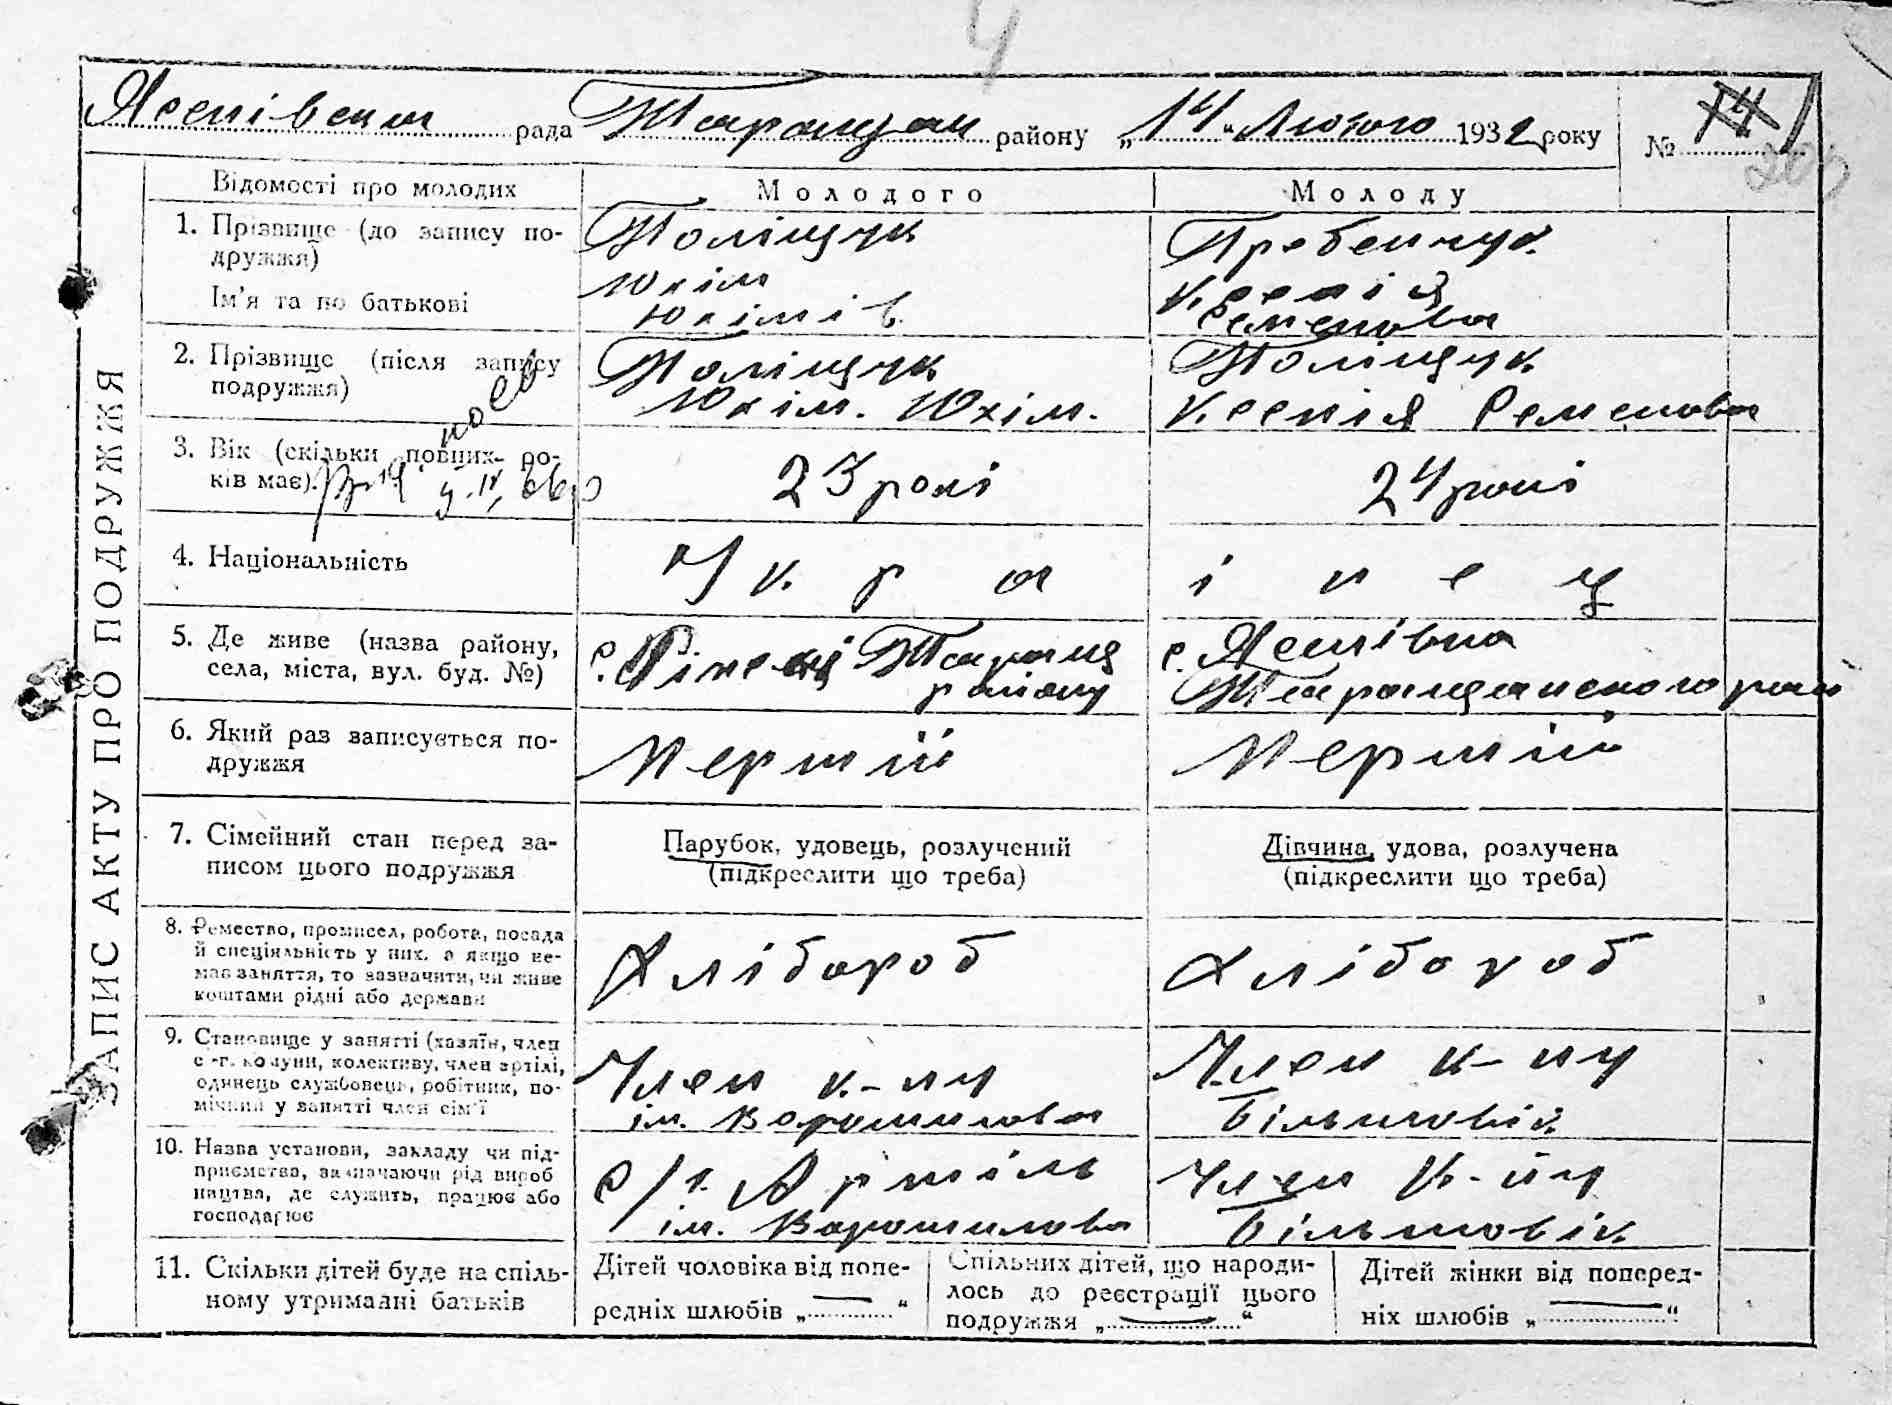 4
Ясенівська рада Таращан району „14“ Лютого 1932 року № 14 1
Відомості про молодих Молодого Молоду
1. Прізвище (до запису по-
дружжя)
Ім'я та по батькові
Поліщук
Юхім
Юхімів
Гребенчук
Ксенія
Семенова
2. Прізвище (після запису
подружжя)
Поліщук
Юхім. Юхім.
Поліщук
Ксенія Семенова
3. Вік (скільки повних ро-
ків має).
23 рокі
24 рокі
4. Національність
Укра інец
5. Де живе (назва району,
села, міста, вул. буд. №)
с. Таращ
району
с. Ясенівка
Таращанского рай
6. Який раз записується по-
дружжя
перший
перший
7. Сімейний стан перед за-
писом цього подружжя
Парубок, удовець, розлучений
(підкреслити що треба)
Дівчина, удова, розлучена
(підкреслити що треба)
8. Ремество, промисел, робота, посада
й спеціяльність у них, а якщо не-
має заняття, то зазначити, чи живе
коштами рідні або держави
Хлібороб
Хлібороб
9. Становище у занятті (хазяїн, член
с.-г. комуни, колективу, член артілі,
одинець службовець, робітник, по-
мічник у занятті член сім'ї
Член к-пу
ім. Ворошилова
Член к-пу
Більшовік
10. Назва установи, закладу чи під-
приємства, зазначаючи рід вироб
ництва, де служить, працює або
господарює
с/г. Артіль
ім. Ворошилова
Член к-пу
Більшовік
11. Скільки дітей буде на спіль-
ному утриманні батьків
Дітей чоловіка від попе-
редніх шлюбів „ — “
Спільних дітей, що народи-
лось до реєстрації цього
подружжя „ — “
Дітей жінки від поперед-
ніх шлюбів „ — “
ЗАПИС АКТУ ПРО ПОДРУЖЖЯ